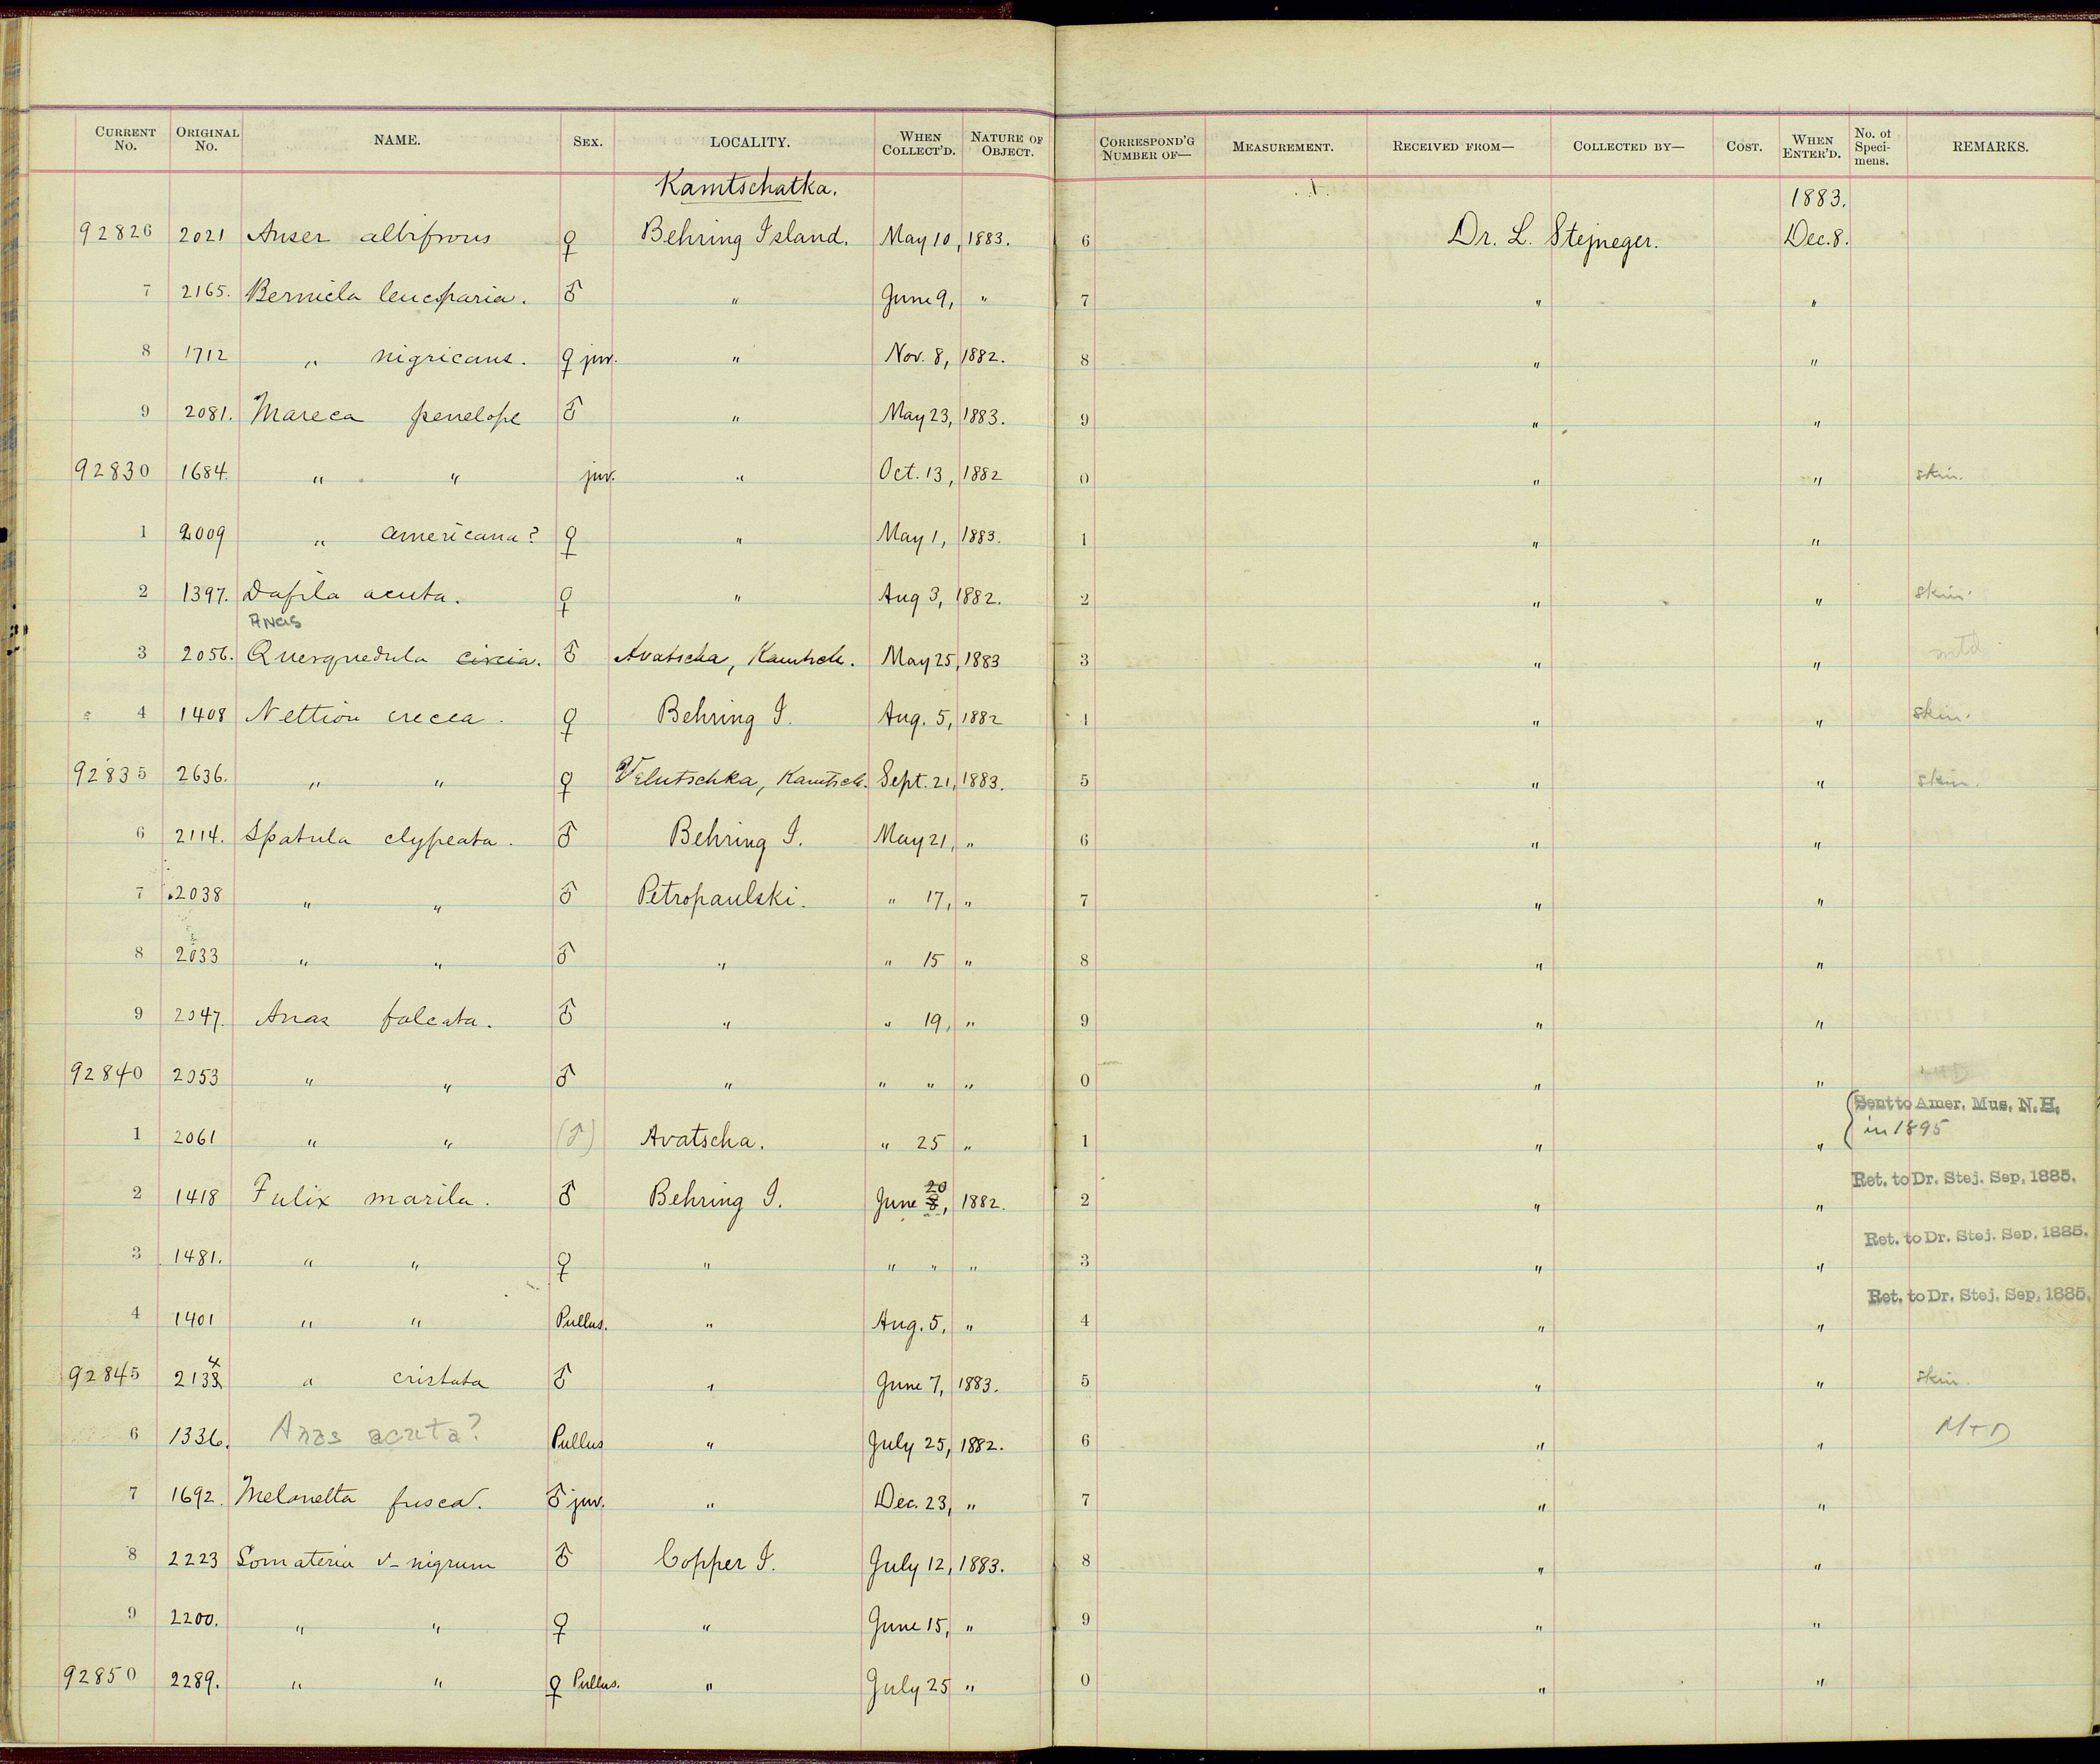 CURRENT No. ORIGINAL No. NAME. SEX. LOCALITY. WHEN COLLECT'D. NATURE OF OBJECT. CORRESPOND'G NUMBER OF— MEASUREMENT. RECEIVED FROM— COLLECTED BY— COST. WHEN ENTER'D. No. of Speci-mens. REMARKS.
Kamtschatka. 1883.
92826 2021 Anser albifrons ♀ Behring Island. May 10, 1883. 6 Dr. L. Stejneger. Dec. 8.
7 2165. Bernicla leucoparia. ♂ " June 9, " 7 " "
8 1712 " nigricans. ♀ juv. " Nov. 8, 1882. 8 " "
9 2081. Mareca penelope ♂ " May 23, 1883. 9 " "
92830 1684. " " juv. " Oct. 13, 1882 0 " " skin.
1 2009 " americana? ♀ " May 1, 1883. 1 " "
2 1397. Dafila acuta. ♀ " Aug 3, 1882. 2 " " skin.
Anas
3 2056. Querquedula circia. ♂ Avatscha, Kamtsch. May 25, 1883 3 " " mtd
4 1408 Nettion crecca. ♀ Behring I. Aug. 5, 1882 4 " " skin.
92835 2636. " " ♀ Kamtsch. Sept. 21, 1883. 5 " " skin.
6 2114. Spatula clypeata. ♂ Behring I. May 21, " 6 " "
7 2038 " " ♂ Petropaulski. " 17, " 7 " "
8 2033 " " ♂ " " 15 " 8 " "
9 2047. Anas falcata. ♂ " " 19, " 9 " "
92840 2053 " " ♂ " " " " 0 " "
1 2061 " " (♂) Avatscha. " 25 " 1 " " { Sent to Amer. Mus. N.H.
in 1895
2 1418 Fulix marila. ♂ Behring I. June 8, 20 1882. 2 " " Ret. to Dr. Stej. Sep. 1885.
3 1481. " " ♀ " " " " 3 " " Ret. to Dr. Stej. Sep. 1885.
4 1401 " " Pullus. " Aug. 5, " 4 " " Ret. to Dr. Stej. Sep. 1885.
92845 2138 4 " cristata ♂ " June 7, 1883. 5 " " skin.
6 1336. Anas acuta? Pullus " July 25, 1882. 6 " " MTD
7 1692. Melanetta fusca. ♂ juv. " Dec. 23, " 7 " "
8 2223 Somateria v-nigrum ♂ Copper I. July 12, 1883. 8 " "
9 2200. " " ♀ " June 15, " 9 " "
92850 2289. " " ♀ Pullus. " July 25 " 0 " "